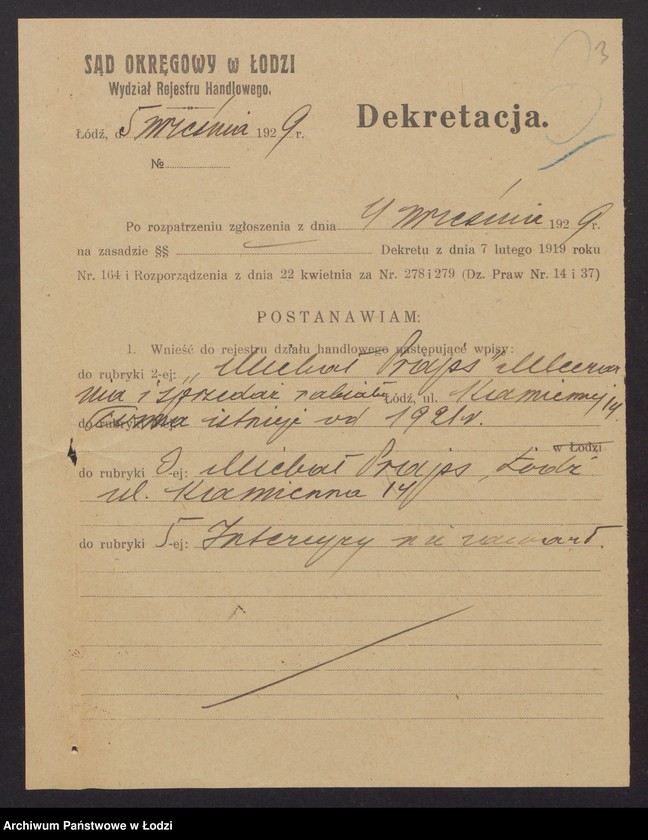 3
SĄD OKRĘGOWY w ŁODZI
Wydział Rejestru Handlowego.
Łódź, d. 5 września 1929 r.
Dekretacja.
№
Po rozpatrzeniu zgłoszenia z dnia 4 września 1929 r.
na zasadzie §§ Dekretu z dnia 7 lutego 1919 roku
Nr. 164 i Rozporządzenia z dnia 22 kwietnia za Nr. 278 i 279 (Dz. Praw Nr. 14 i 37)
POSTANAWIAM:
1. Wnieść do rejestru działu handlowego następujące wpisy:
do rubryki 2-ej: „Michał Prajs" Mleczar
nia i sprzedaż nabiału Łódź, ul. Kamiennej 14.
do rubryki Firma istnieje od 1921 r.
w Łodzi
do rubryki 3-ej: Michał Prajs, Łódź
ul. Kamienna 14
do rubryki 5-ej: Intercyzy nie zawarł.
Archiwum Państwowe w Łodzi